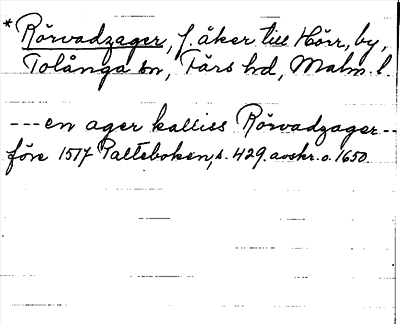 * Rörvadzager, f. åker till Hörr, by,
Tolånga sn, Färs hd, Malm. l.
--- en ager kalliss Rörvadzager --
före 1517 Palteboken, s. 429. avskr. o. 1650.